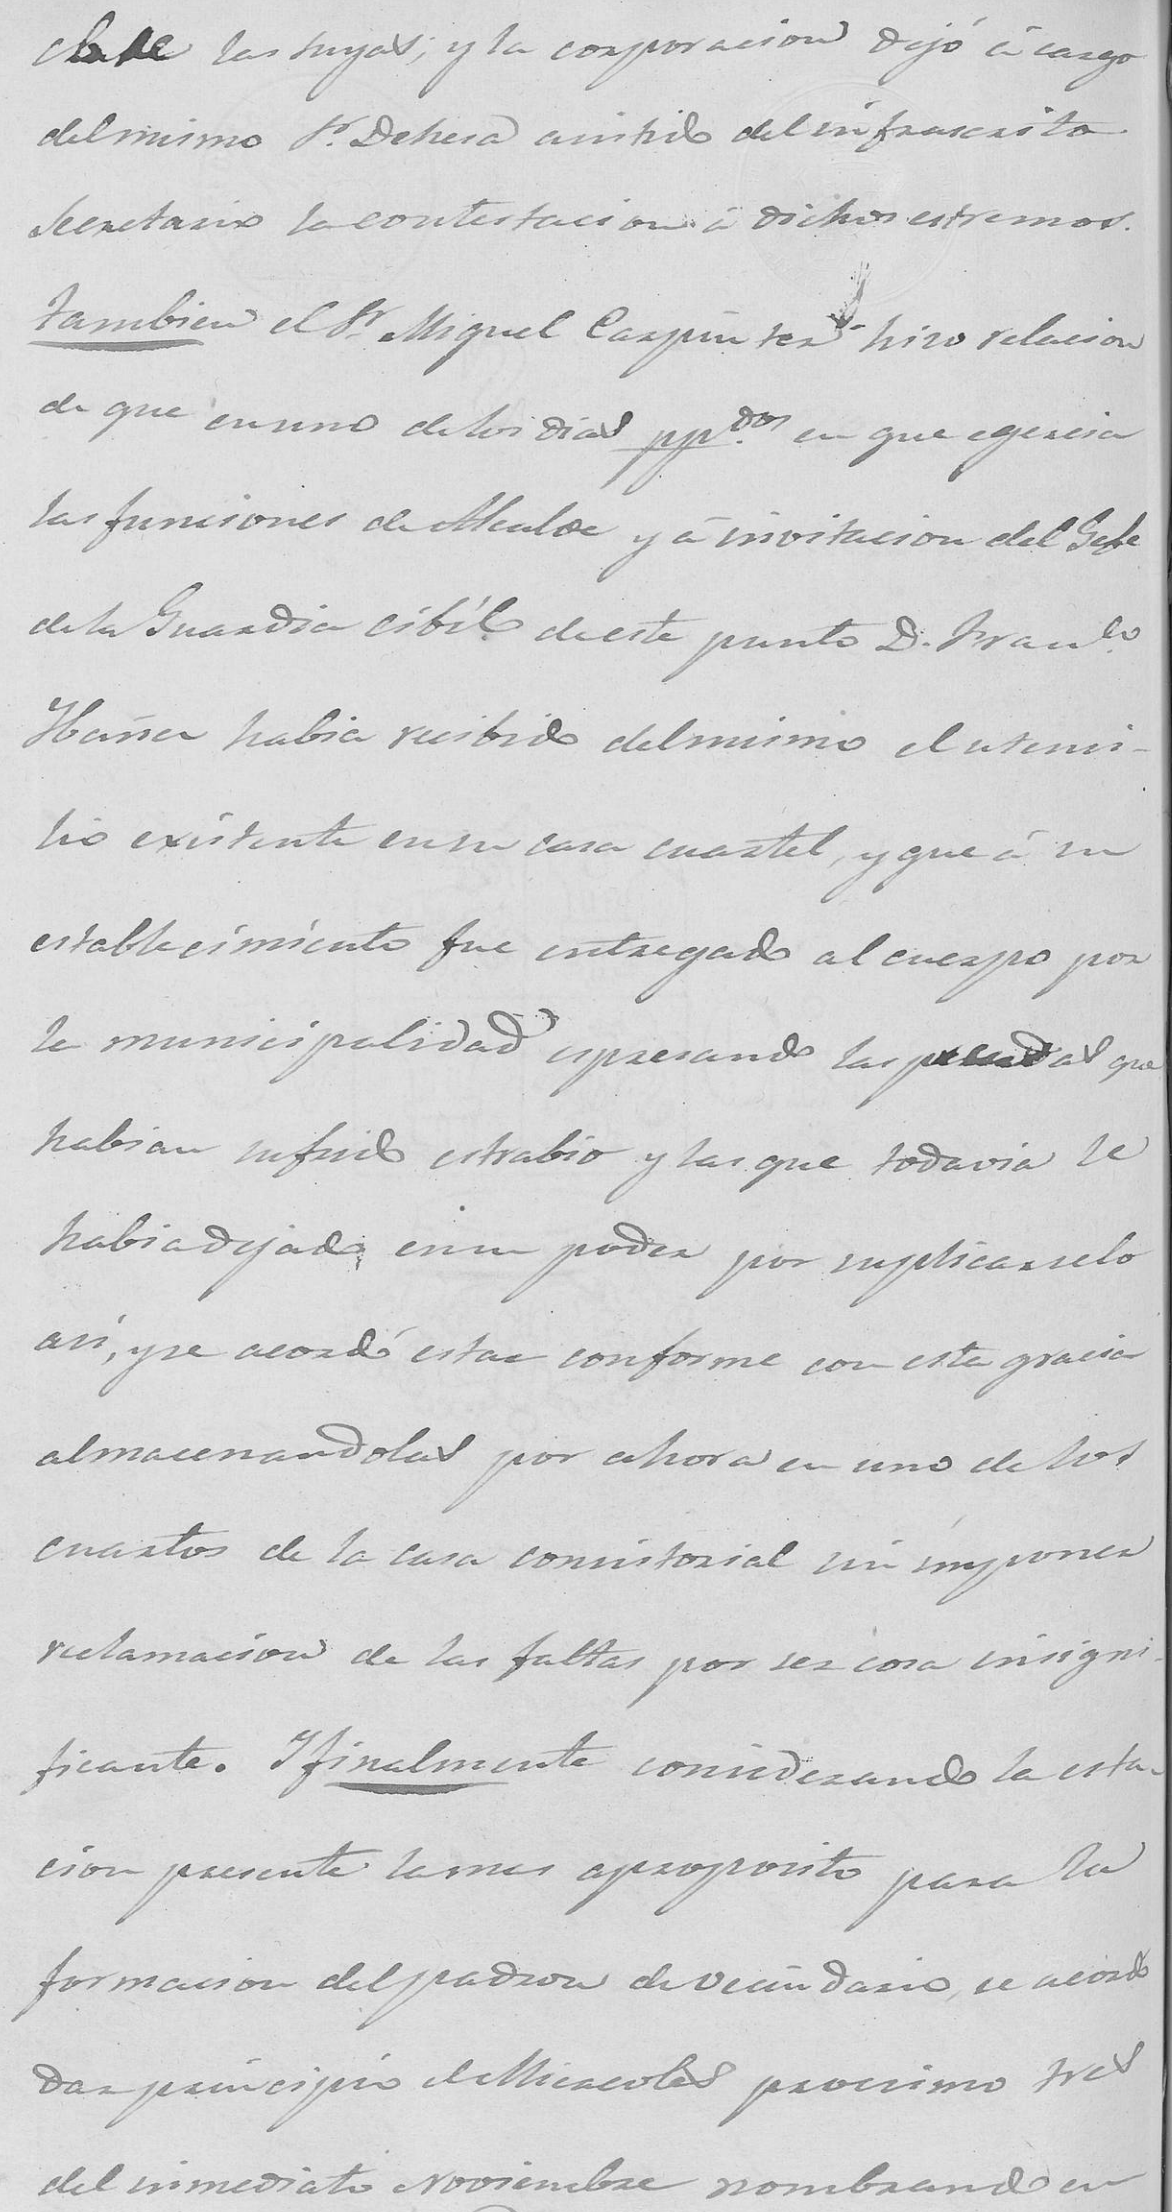 clase las suyas; y la corporacion dejó á cargo
del mismo Sr. Dehesa asistido del infrascrito
Secretario la contestacion á dichos estremos.
Tambien el Sr. Miguel Carpintero hizo relacion
de que en uno de los dias pp.dos en que egercia
las funciones de Alcalde y á invitacion del Gefe
de la Guardia cibíl de este punto D. Franco.
Ibañez habia recibido del mismo el utensi-
lio existente en su casa cuartel, y que á su
establecimiento fue entregado al cuerpo por
la municipalidad espresando las prendas que
habian sufrido estrabio y las que todavia le
habia dejado en su poder por suplicarselo
asi, y se acordó estar conforme con esta gracia
almacenandolas por ahora en uno de los
cuartos de la casa consistorial sin imponer
reclamacion de las faltas por ser cosa insigni-
ficante. Y finalmente considerando la esta-
cion presente la mas aproposito para la
formacion del padron de vecindario, se acordó
dar principio el Miercoles procsimo tres
del inmediato Noviembre nombrando en